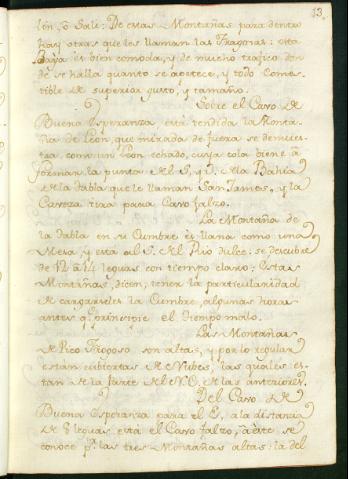 13.
lon, ò Sale: De estas Montañas para dentro
hay otras que les llaman las Fragosas: esta
Baya es bien comoda, y de mucho trafico don
de se halla quanto se apetece, y todo Comes-
tible de superior gusto, y tamaño.
Sobre el Cavo de
Buena Esperanza està tendida la Monta-
ña de Leon, que mirada de fuera se demues-
tra como un Leon echado, cuya cola viene à
formar la punta del S, y O. de la Bahia
de la dabla que le llaman San James, y la
Caveza tira para Cavo falzo.
La Montaña de
la dabla en su Cumbre es llana como una
Mesa, y està al S. del Rio dulce: se descubre
de 12 à 14 leguas con tiempo claro: Estas
Montañas, dicen, tener la particularidad
de cargarseles la Cumbre, algunas horas
antes q.e principie el tiempo malo.
Las Montañas
de Pico Fragoso son altas, y por lo regular
estan cubiertas de Nubes, las quales es-
tan de la parte del N.O. de las anteriores.
Del Cavo de
Buena Esperanza para el E. a la distancia
de 8 leguas està el Cavo falzo, este se
conoce p.r las tres Montañas altas: la del